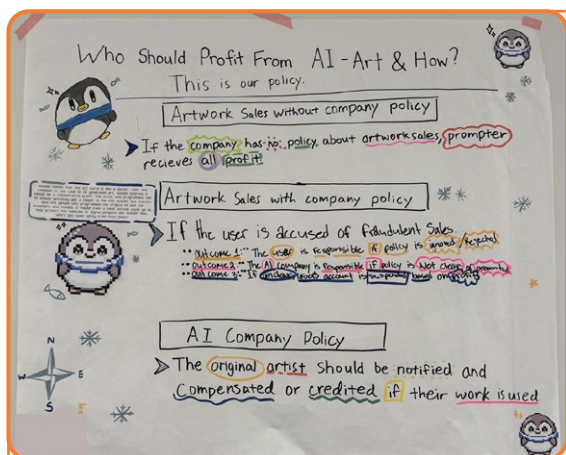 Who Should Profit From AI-Art & How?
This is our policy.
Artwork Sales without company policy
If the company has no policy about artwork sales, prompter
recieves all profit!
Artwork Sales with company policy
If the user is accused of fraudulent sales.
Outcome 1: The user is responsible if policy is ignored/rejected
Outcome 2: The AI company is responsible if policy is Not clear or presented
Outcome 3: If unclear, account is based on
AI Company Policy
The original artist should be notified and
compensated or credited if their work is used
N
W
E
S